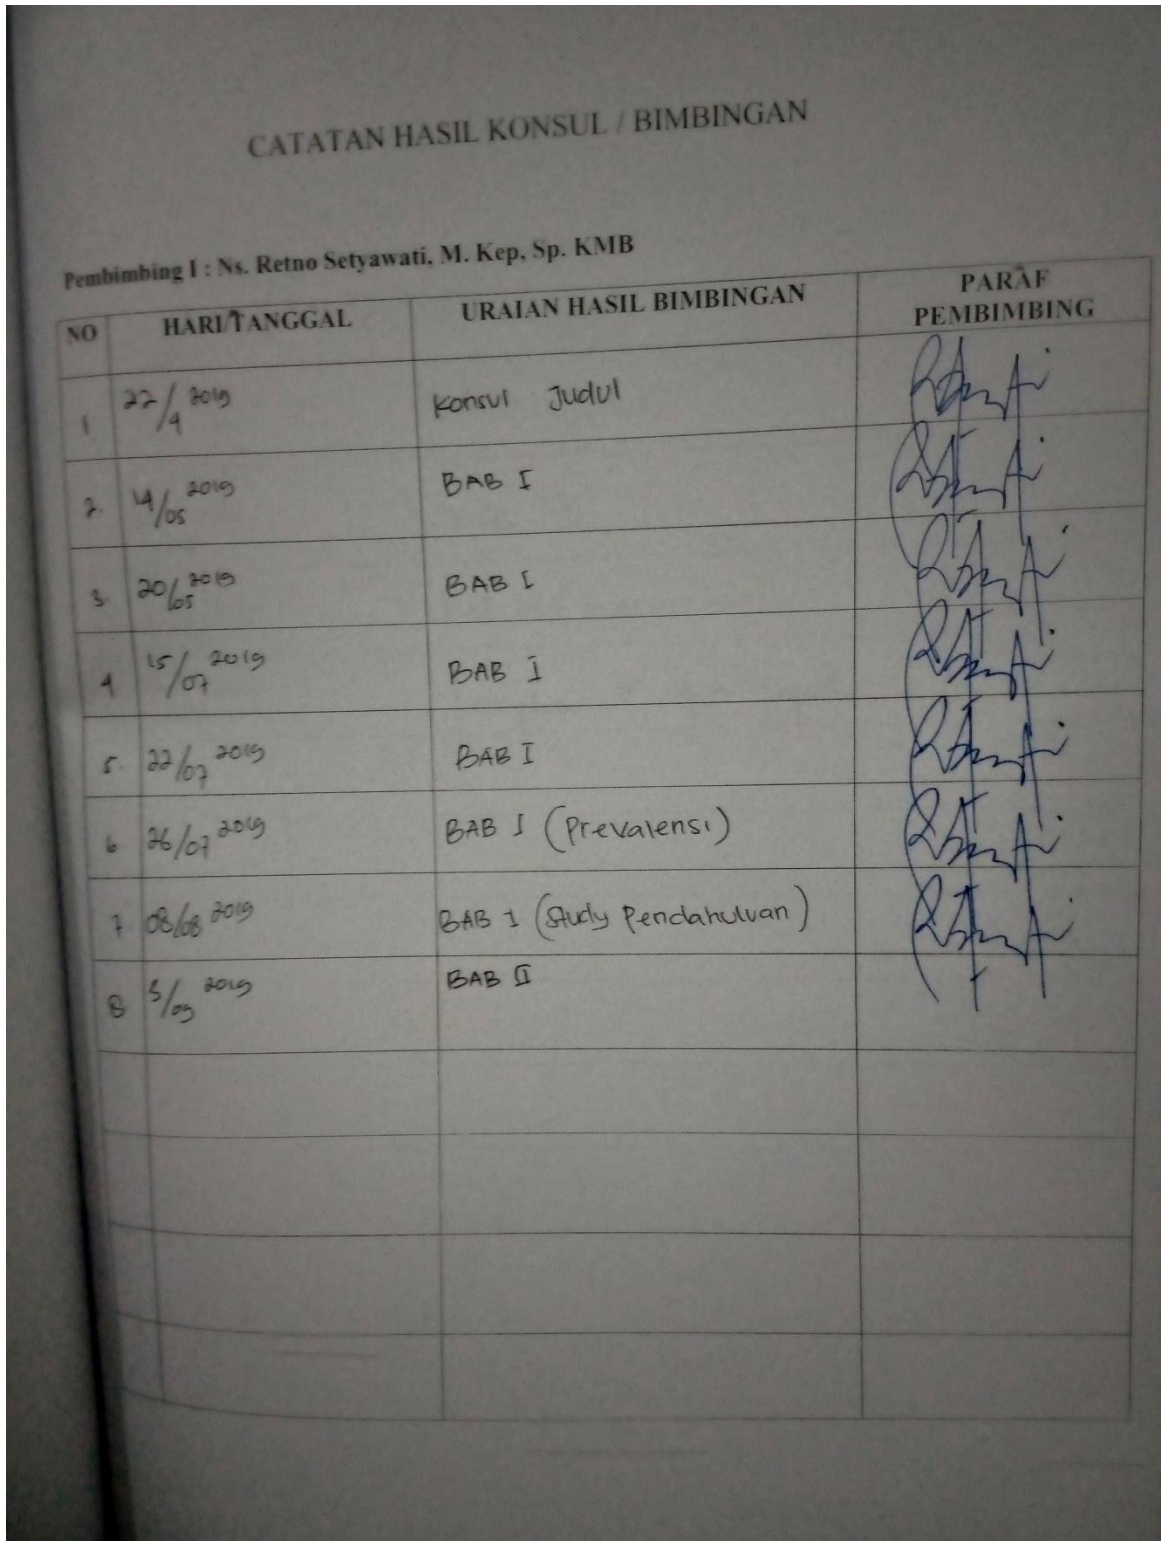 CATATAN HASIL KONSUL / BIMBINGAN
Pembimbing I : Ns. Retno Setyawati, M. Kep, Sp. KMB
NO HARI/TANGGAL URAIAN HASIL BIMBINGAN PARAF PEMBIMBING
1 22/4 2019 Konsul Judul
2. 14/05 2019 BAB I
3. 20/05 2019 BAB I
4 15/07 2019 BAB I
5. 22/07 2019 BAB I
6 26/07 2019 BAB I (Prevalensi)
7. 08/08 2019 BAB I (Study Pendahuluan)
8 3/09 2019 BAB II